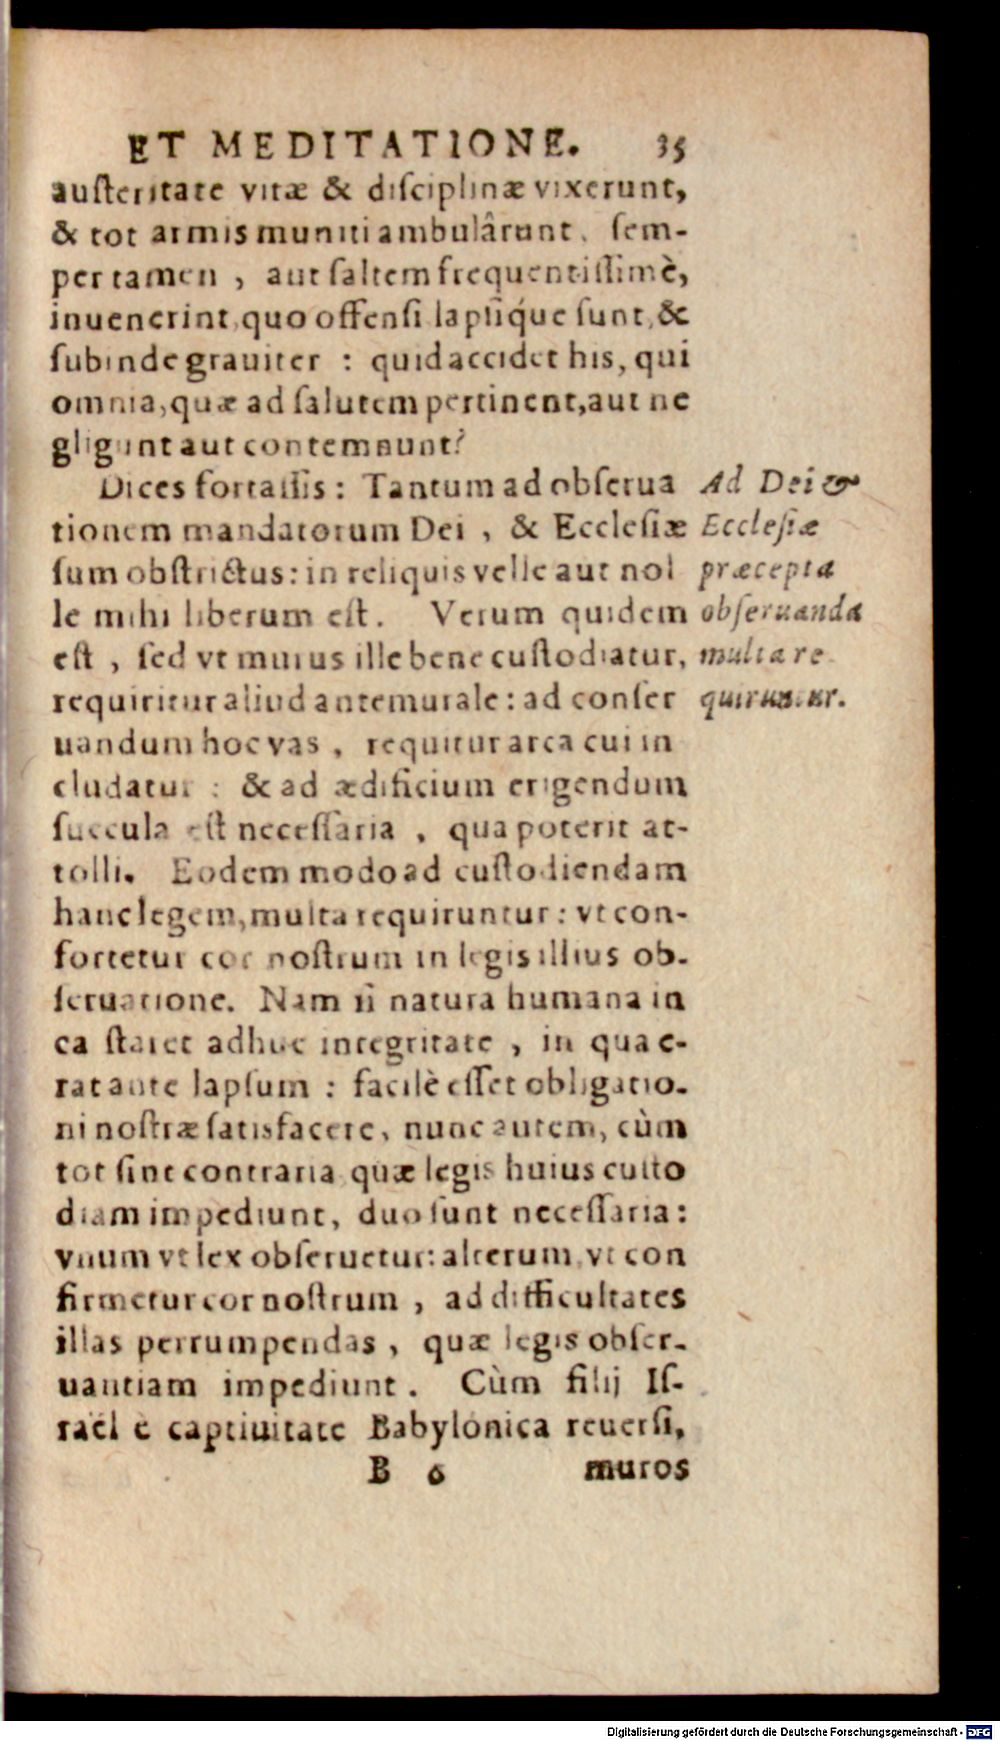 ET MEDITATIONE. 35
austeritate vitæ & disciplinæ vixerunt,
& tot armis muniti ambulârunt, sem-
per tamen, aut saltem frequentissimè,
inuenerint, quo offensi lapsiq́ue sunt, &
subinde grauiter : quid accidet his, qui
omnia, quæ ad salutem pertinent, aut ne
gligunt aut contemnunt?
Dices fortassis : Tantum ad obserua
tionem mandatorum Dei, & Ecclesiæ
sum obstrictus: in reliquis velle aut nol
le mihi liberum est. Verum quidem
est, sed vt murus ille bene custodiatur,
requiritur aliud antemurale: ad conser
uandum hoc vas, requitur arca cui in
cludatur : & ad ædificium erigendum
succula est necessaria, qua poterit at-
tolli. Eodem modo ad custodiendam
hanc legem, multa requiruntur: vt con-
fortetur cor nostrum in legis illius ob-
seruatione. Nam si natura humana in
ea staret adhuc integritate, in qua e-
rat ante lapsum : facilè esset obligatio-
ni nostræ satisfacere, nunc autem, cùm
tot sint contraria quæ legis huius custo
diam impediunt, duo sunt necessaria:
vnum vt lex obseruetur: alterum, vt con
firmetur cor nostrum, ad difficultates
illas perrumpendas, quæ legis obser-
uantiam impediunt. Cùm filij Is-
raël è captiuitate Babylonica reuersi,
B 6 muros
Ad Dei &
Ecclesiæ
præcepta
obseruanda
multa re
quiruntur.
Digitalisierung gefördert durch die Deutsche Forschungsgemeinschaft - DFG